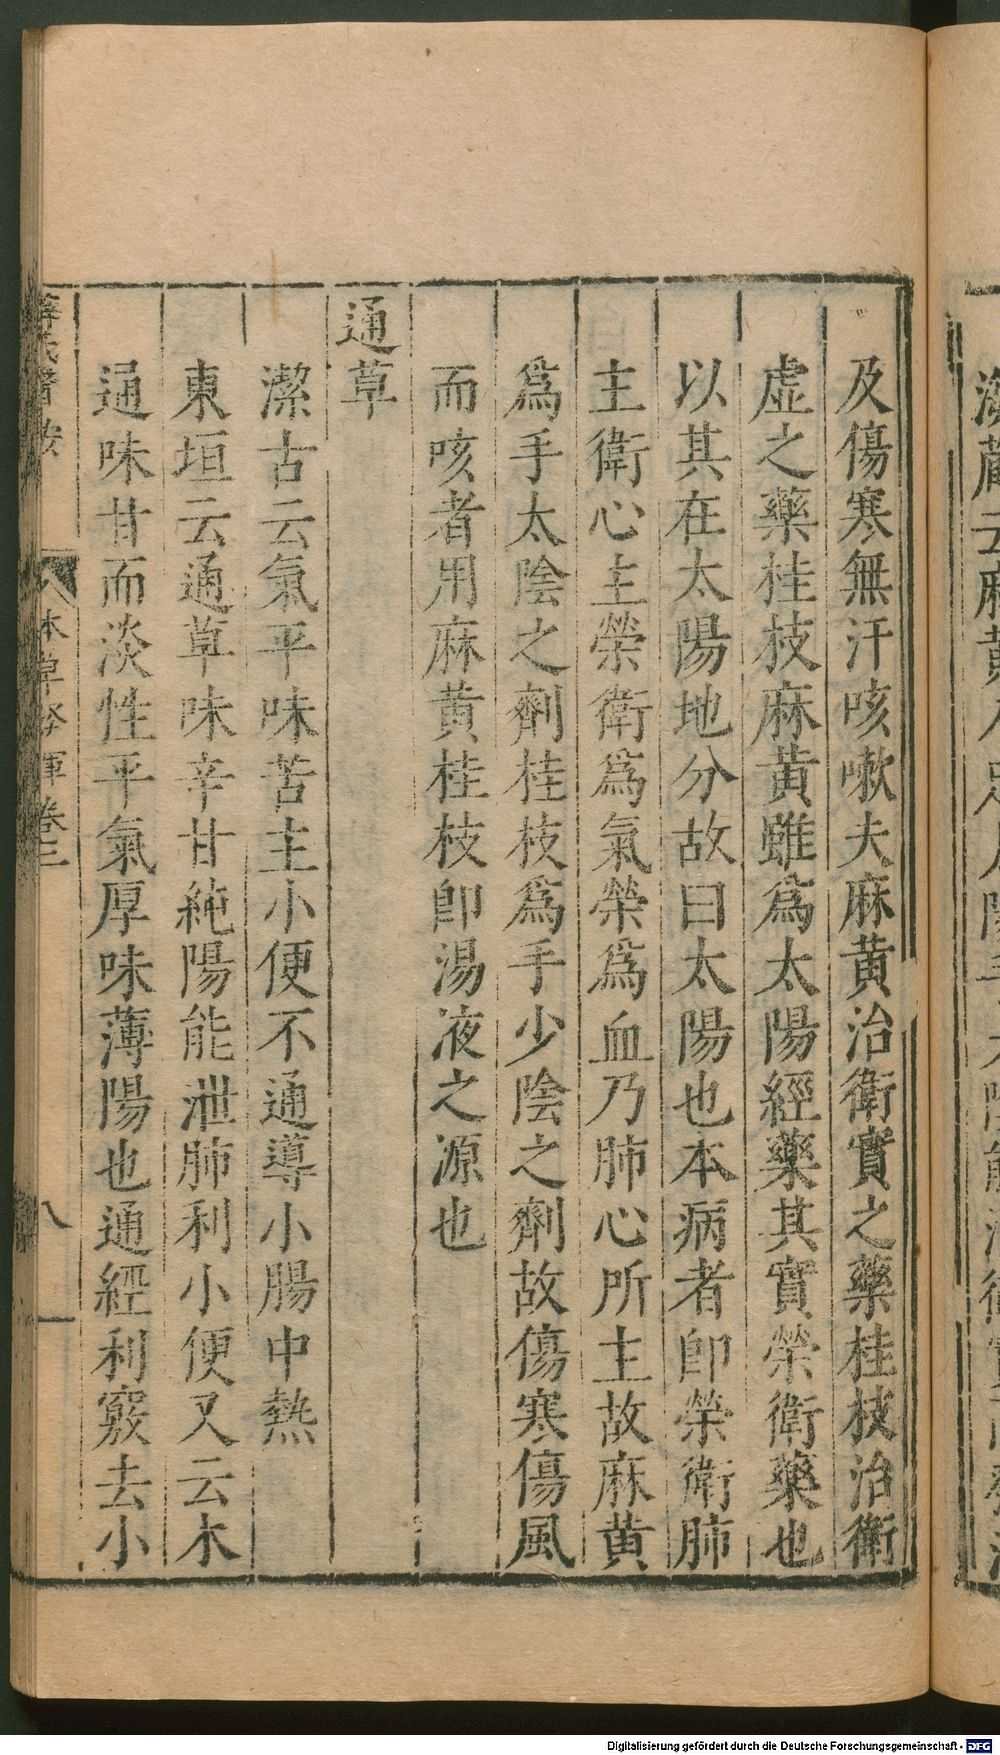 及傷寒無汗咳嗽夫麻黄治衛實之藥桂枝治衛
虚之藥桂枝麻黄雖爲太陽經藥其實榮衛藥也
以其在太陽地分故曰太陽也本病者卽榮衛肺
主衛心主榮衛爲氣榮爲血乃肺心所主故麻黄
爲手太陰之劑桂枝爲手少陰之劑故傷寒傷風
而咳者用麻黄桂枝卽湯液之源也
通草
潔古云氣平味苦主小便不通導小腸中熱
東垣云通草味辛甘純陽能泄肺利小便又云木
通味甘而淡性平氣厚味薄陽也通經利竅去小
薛氏醫按
本草發揮卷三
八
Digitalisierung gefördert durch die Deutsche Forschungsgemeinschaft - DFG